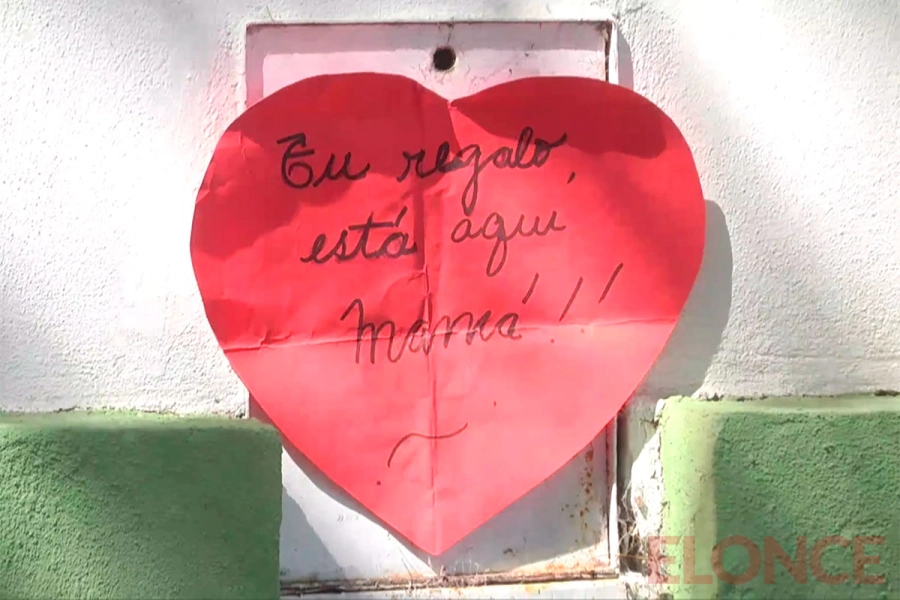 Tu regalo
está aquí,
Mamá!!
ELONCE